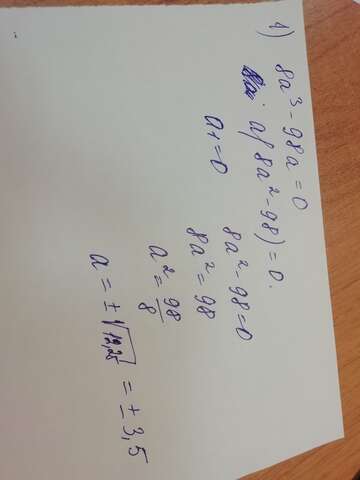 1) 8a³ - 98a = 0
a(8a² - 98) = 0.
a1 = 0
8a² - 98 = 0
8a² = 98
a² = 98/8
a = ±√12,25 = ±3,5